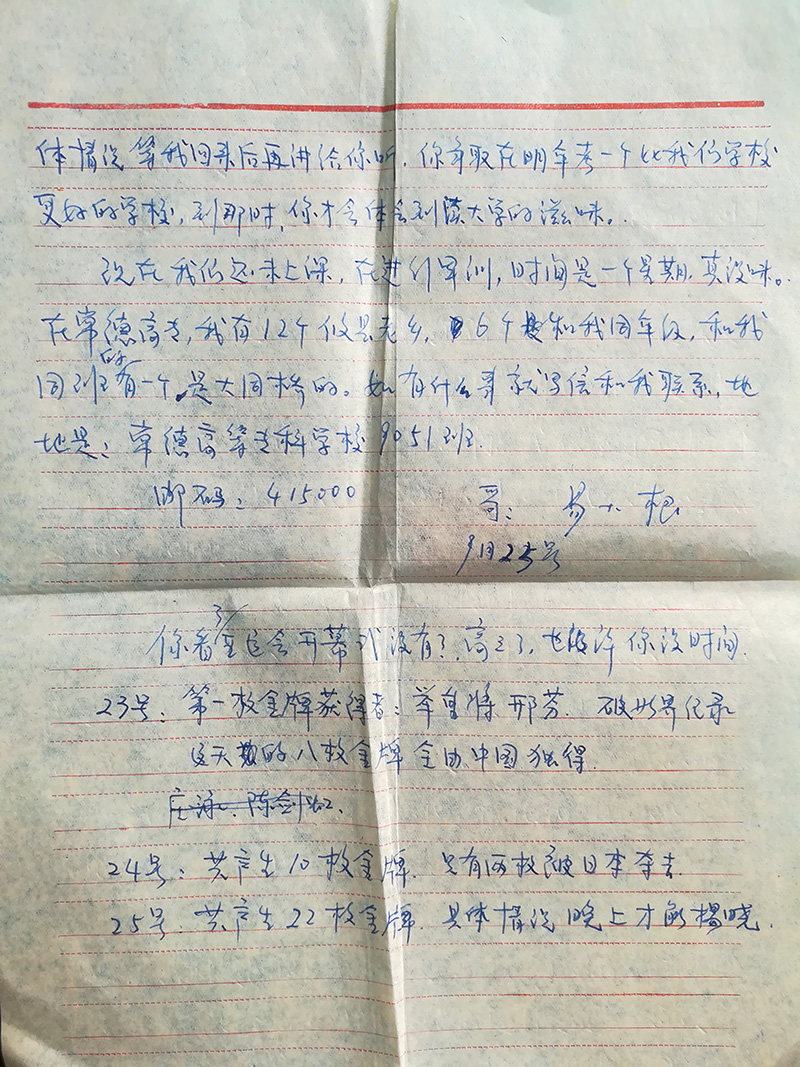 体情况等我回来后再讲给你听,你争取在明年考一个比我们学校
更好的学校,到那时,你才会体会到读大学的滋味。
现在我们还未上课,在进行军训,时间是一个星期,真没味。
在常德高专,我有12个攸县老乡,6个是和我同年级,和我
同班的有一个,是大同桥的。如有什么事就写信和我联系,地
地是:常德高等专科学校9051班.
邮码:415000
哥:易小根
9月25号
你看了亚运会开幕式没有?高三了,也许你没时间.
23号:第一枚金牌获得者:举重将邢芬.破世界纪录
这天的八枚金牌全由中国独得.
庄泳、陈剑虹.
24号:共产生10枚金牌.只有两枚被日本夺去.
25号.共产生22枚金牌.具体情况晚上才能揭晓.